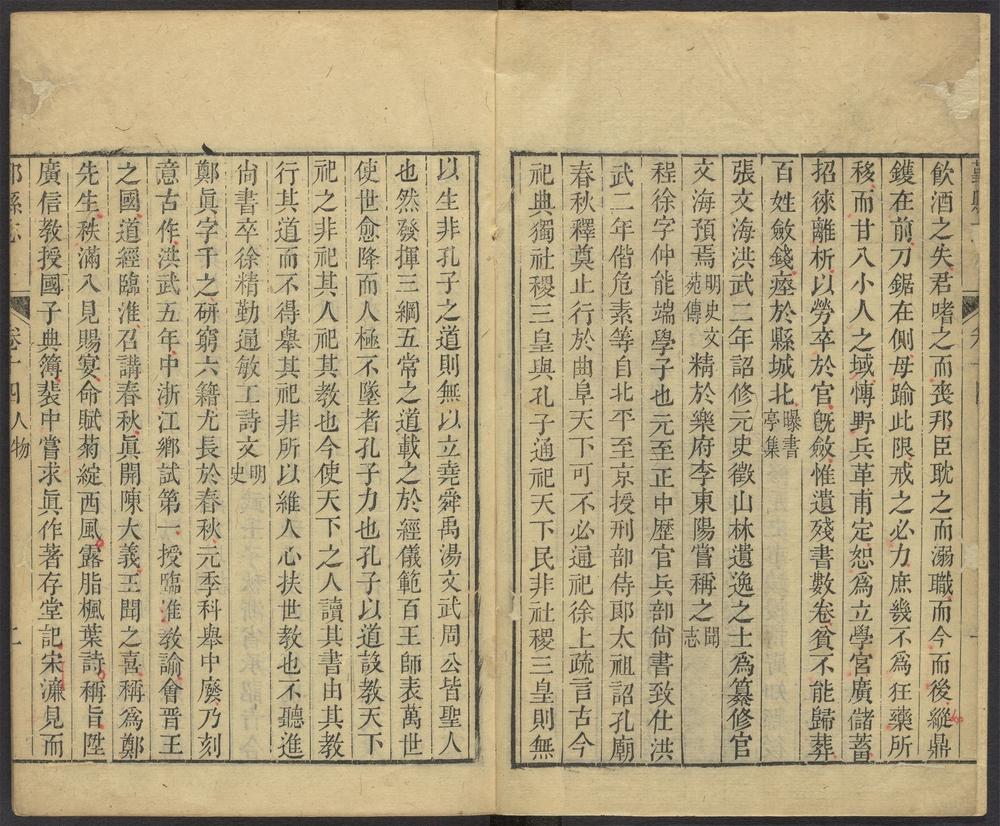 飲酒之失君嗜之而喪邦臣耽之而溺職而今而後縱鼎
鑊在前刀鋸在側毋踰此限戒之必力庶幾不爲狂藥所
移而甘入小人之域慱野兵革甫定恕爲立學宮廣儲蓄
招徠離析以勞卒於官旣斂惟遺殘書數卷貧不能歸葬
百姓斂錢瘞於縣城北曝書亭集
張文海洪武二年詔修元史徵山林遺逸之士爲纂修官
文海預焉明史文苑傳精於樂府李東陽嘗稱之聞志
程徐字仲能端學子也元至正中歴官兵部尙書致仕洪
武二年偕危素等自北平至京授刑部侍郎太祖詔孔廟
春秋釋奠止行於曲阜天下可不必通祀徐上疏言古今
祀典獨社稷三皇與孔子通祀天下民非社稷三皇則無
以生非孔子之道則無以立堯舜禹湯文武周公皆聖人
也然發揮三綱五常之道載之於經儀範百王師表萬世
使世愈降而人極不墜者孔子力也孔子以道設教天下
祀之非祀其人祀其教也今使天下之人讀其書由其教
行其道而不得舉其祀非所以維人心扶世教也不聽進
尙書卒徐精勤通敏工詩文明史
鄭眞字千之研窮六籍尤長於春秋元季科舉中廢乃刻
意古作洪武五年中浙江鄉試第一授臨淮教諭會晋王
之國道經臨淮召講春秋眞開陳大義王聞之喜稱爲鄭
先生秩滿入見賜宴命賦菊綻西風露脂楓葉詩稱旨陞
廣信教授國子典簿裴中嘗求眞作著存堂記宋濂見而
卷十四人物
二